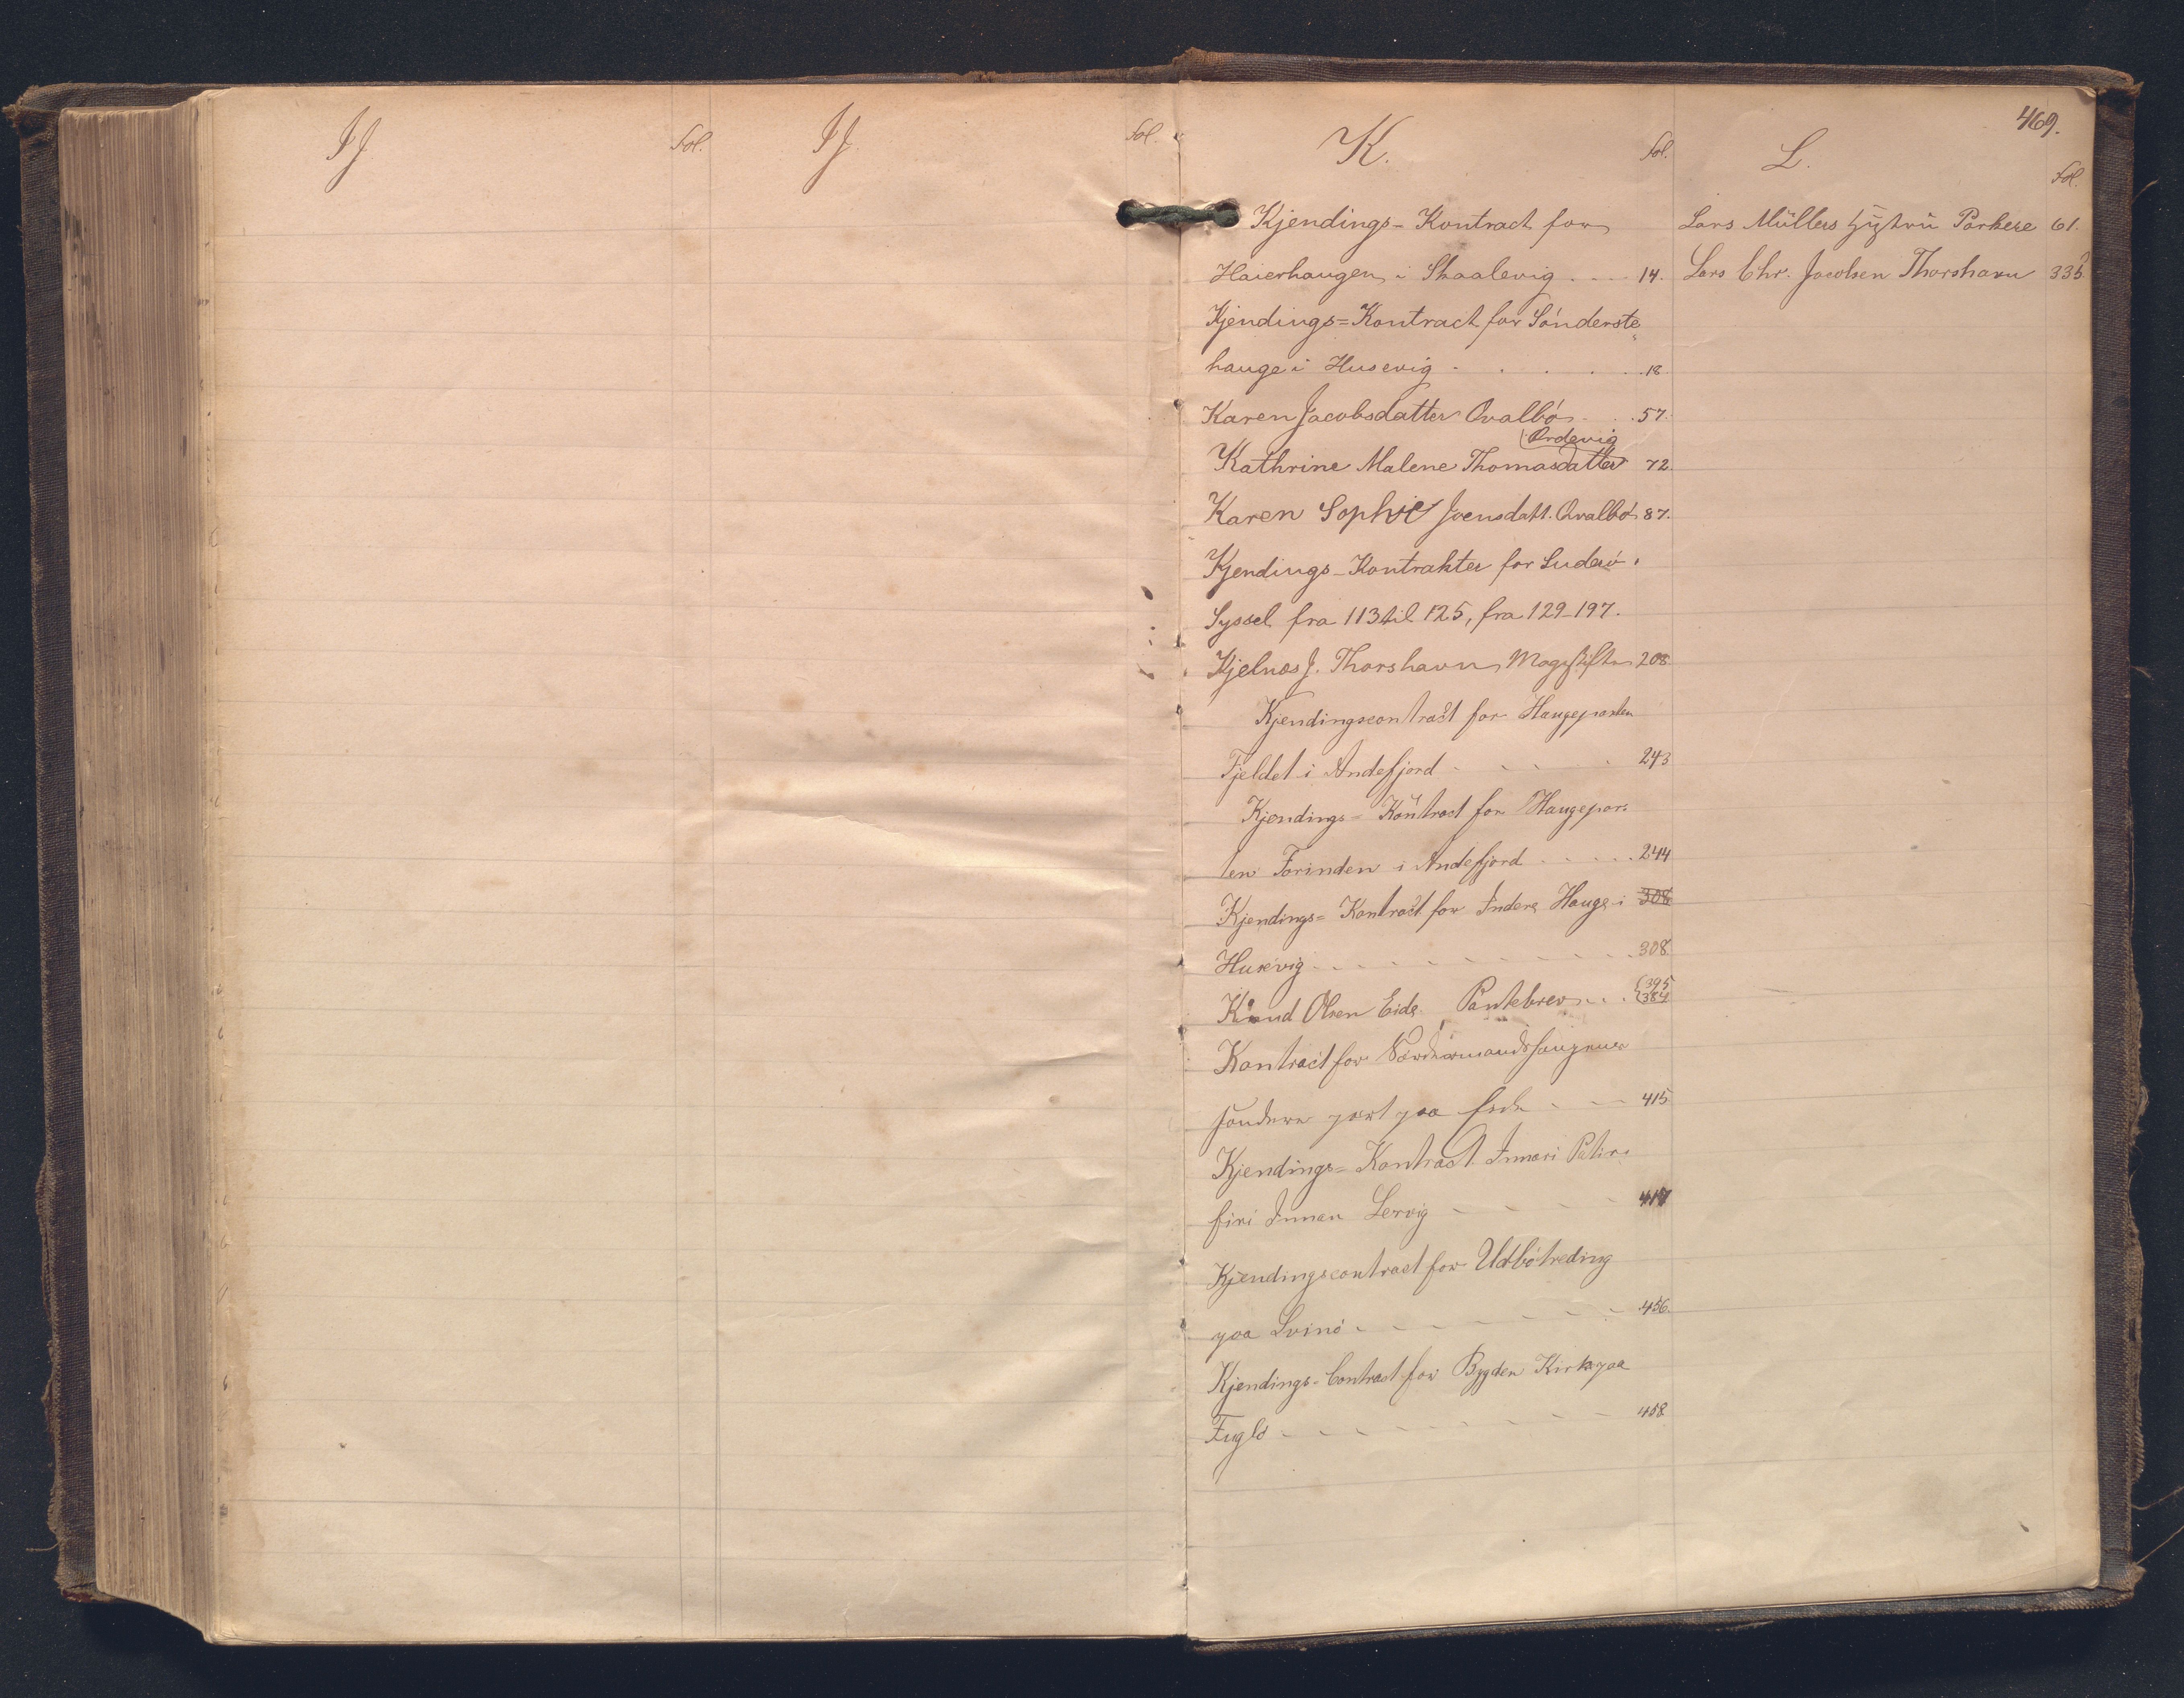 IJ
Fol.
IJ
Fol.
469.
K.
Fol.
Kjendings-Kontract for
Haierhaugen i Skaalevig . . . 14.
Kjendings=Kontract for Sónderste
hauge i Husevig . . . . . 18
Karen Jacobsdatter Qvalbó . . 57.
Ordevig
Kathrine Malene Thomasdatter 72.
Karen Sophie Joensdatt. Qvalbó 87.
Kjendings-Kontrakter for Suderó
Syssel fra 113 til 125, fra 129-197.
Kjelnes J. Thorshavn 208
Kjendingscontract for Haugeparten
Fjeldet i Andefjord . . . . 243
Kjendings-Kontract for Haugepar-
ten Forinden i Andefjord . . . . . 244
Kjendings=Kontract for Indere Hauge i 308
Husevig . . . . . . . . . . 308
Knud Olsen Eide Pantebrev . . . 395
384
Kontract for
part paa . . . 415
Kjendings=Kontract Innari Patir
firi Innan Lervig . . . . 417
Kjendingscontract for Udbótreding
paa Svinó . . . . . . . 456.
Kjendings-Contract for Bygden Kirke paa
Fugló . . . . . . . . 458
L.
Fol.
Lars Müllers Porkere 61.
Lars Chr. Jacobsen Thorshavn 335